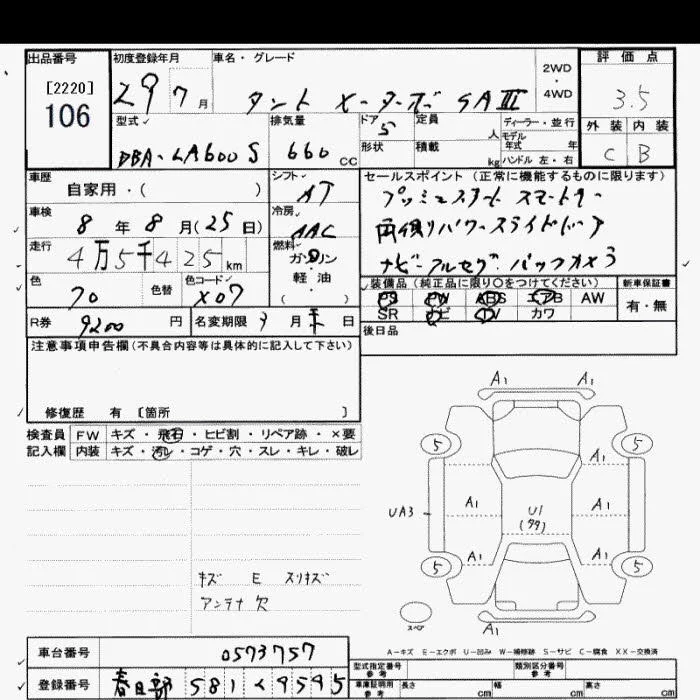 出品番号 初度登録年月 車名・グレード 2WD ・ 4WD 評価点
[2220]
106
29 7月 タント X-ターボ SAⅢ 3.5
型式 排気量 ドア 5 定員 人 ディーラー・並行 外装 内装
DBA-LA600S 660 CC 形状 積載 kg モデル年式 年 ハンドル 左・右 C B
車歴 シフト セールスポイント (正常に機能するものに限ります)
自家用・( ) AT プッシュスタート スマートキー
車検 冷房 両側パワースライドドア
8年8月(25日) AAC ナビ フルセグ バックカメラ
走行 燃料
4万5千425km ガソリン
軽油
( )
色 色替 色コード
70 X07
装備品 (純正品に限り○をつけてください) 新車保証書
PS PW ABS エアB AW 有・無
SR ナビ TV カワ
R券 9200円 名変期限 月 日 後日品
注意事項申告欄 (不具合内容等は具体的に記入して下さい)
修復歴 有 [箇所 ]
検査員 FW キズ・飛石・ヒビ割・リペア跡・×要
記入欄 内装 キズ・汚レ・コゲ・穴・スレ・キレ・破レ
A1 A1
5 5
A1 A1
UA3 U1
(99)
A1 A1
5 5
スペア
A1
キズ E スリキズ
アンテナ欠
A-キズ E-エクボ U-凹み W-補修跡 S-サビ C-腐食 XX-交換済
車台番号 0573757
型式指定番号 参考 類別区分番号 参考
登録番号 春日部 581 く 9595
車庫証明用 参考 長さ cm 幅 cm 高さ cm